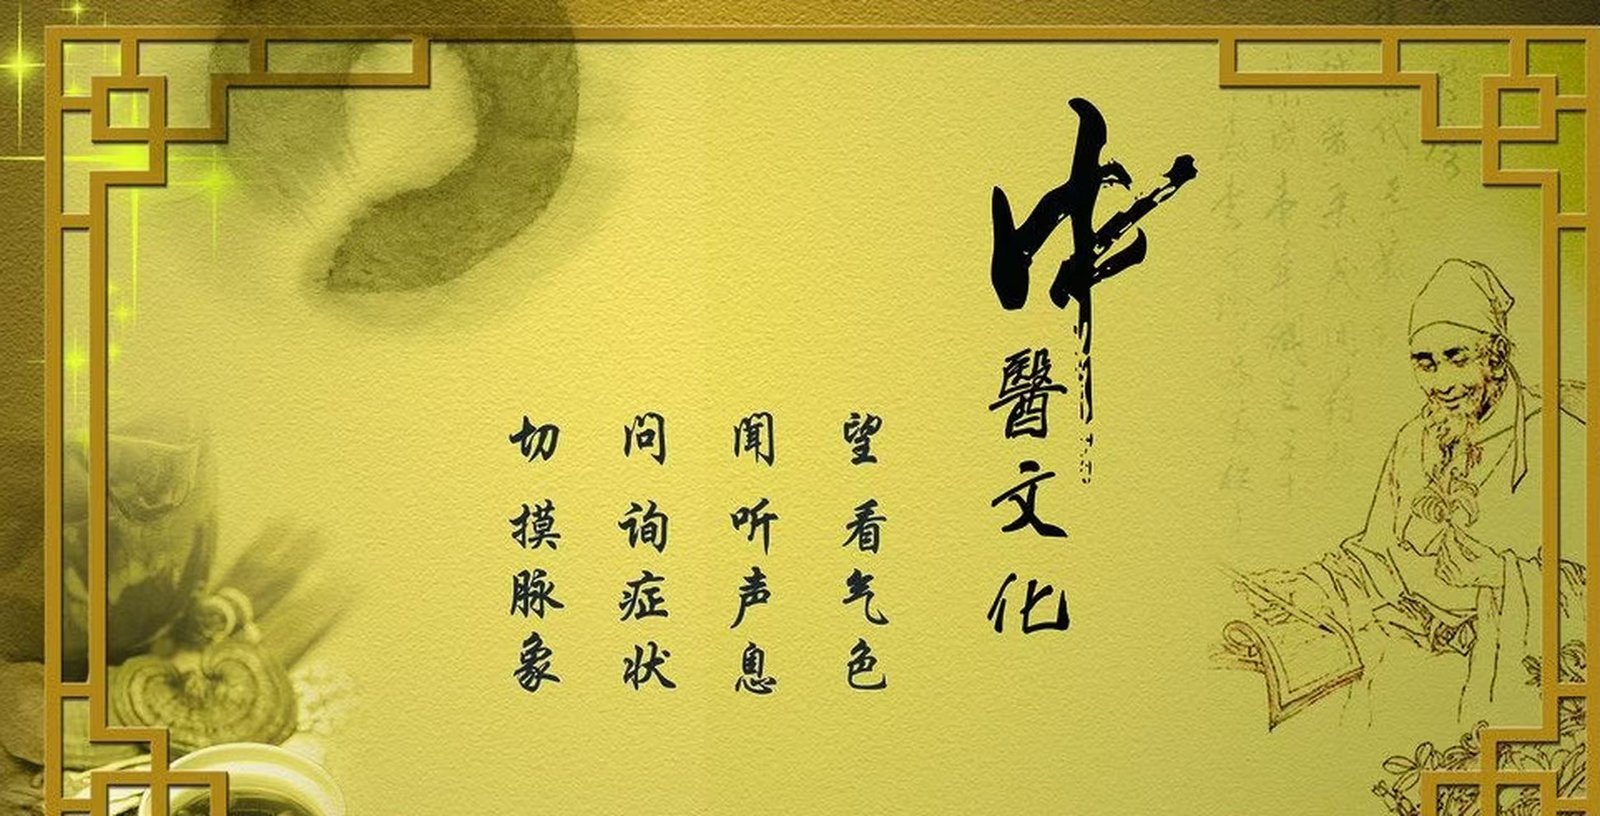 中醫文化
望看气色
聞听声息
问询症状
切摸脉象